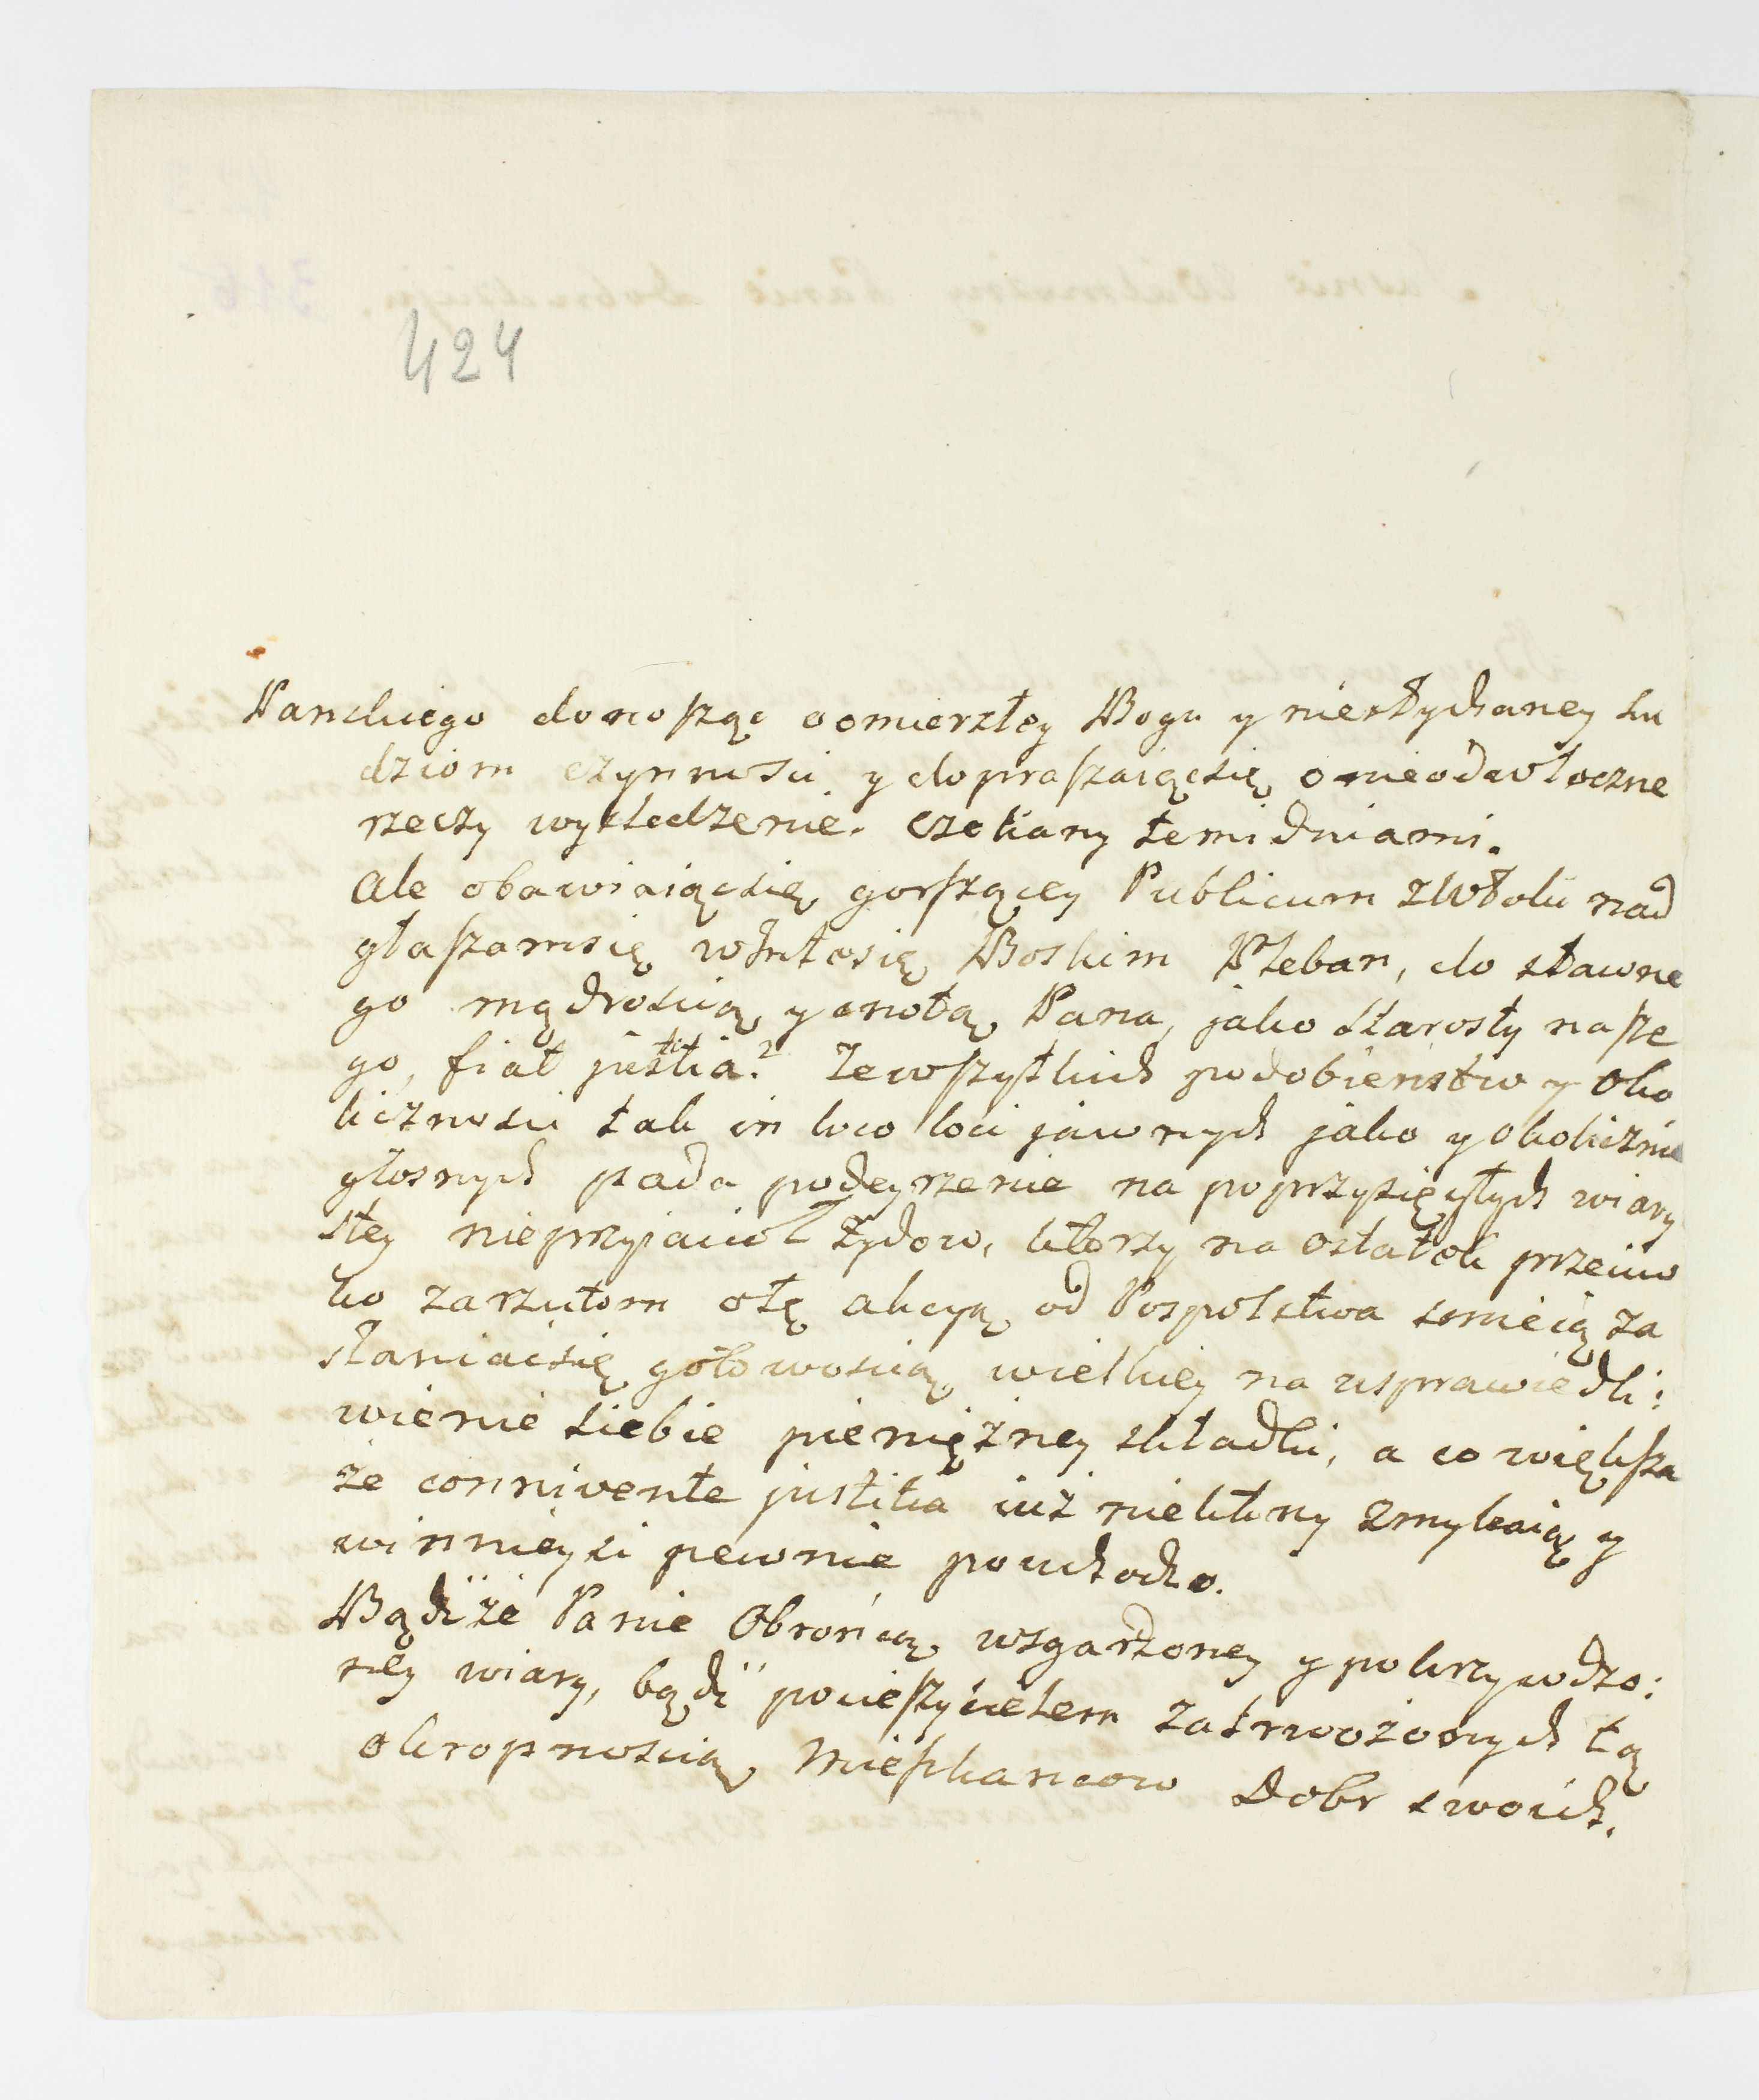 424
Panskiego donosząc o omierzłey Bogu y niesłychaney lu
dziom czynnosci y dopraszaiącsię o nieodwłoczne
rzeczy wysledzenie. Czekany temi dniami.
Ale obawiaiącsię gorszącey Publicum zwłoki nad
głaszamsię w Boskim Pleban, do sławne
go mądroscią y cnotą Pana, jako Starosty nasze
go, fiat justitia? Zewszystkich podobieństw y Oko
licznosci tak in loco loci jawnych jako y okolicznie
głosnych pada podeyrzenie na poprzysięgłych wiary
stey nieprzyiacioł Żydow, ktorzy na ostatek przeciw
ko zarzutom otę akcyą od Pospolstwa smieią za
słaniacsię gotowoscią wielkiey na usprawiedli:
wienie siebie pieniężney składki, a co większa
że connivente justitia iuż niektiny zmykaią y
winnieysi pewnie pouchodzo.
Bądźże Panie Obrońcą wzgardzoney y pokrzywdzo:
ney wiary, bądź pocieszycielem zatrwożonych tą
okropnoscią Mieszkancow Dobr swoich.